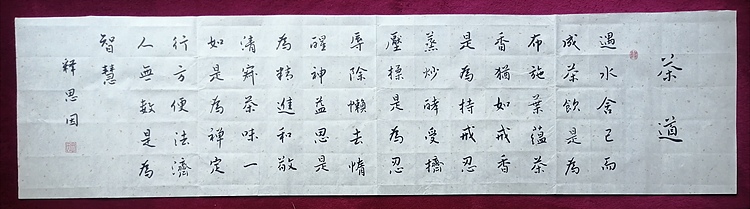 茶道
遇水舍己而
成茶飲是為
布施葉蘊茶
香猶如戒香
是為持戒忍
蒸炒酵受擠
壓揉是為忍
辱除懶去惰
醒神益思是
為精進和敬
清寂茶味一
如是為禪定
行方便法濟
人無數是為
智慧
釋思因